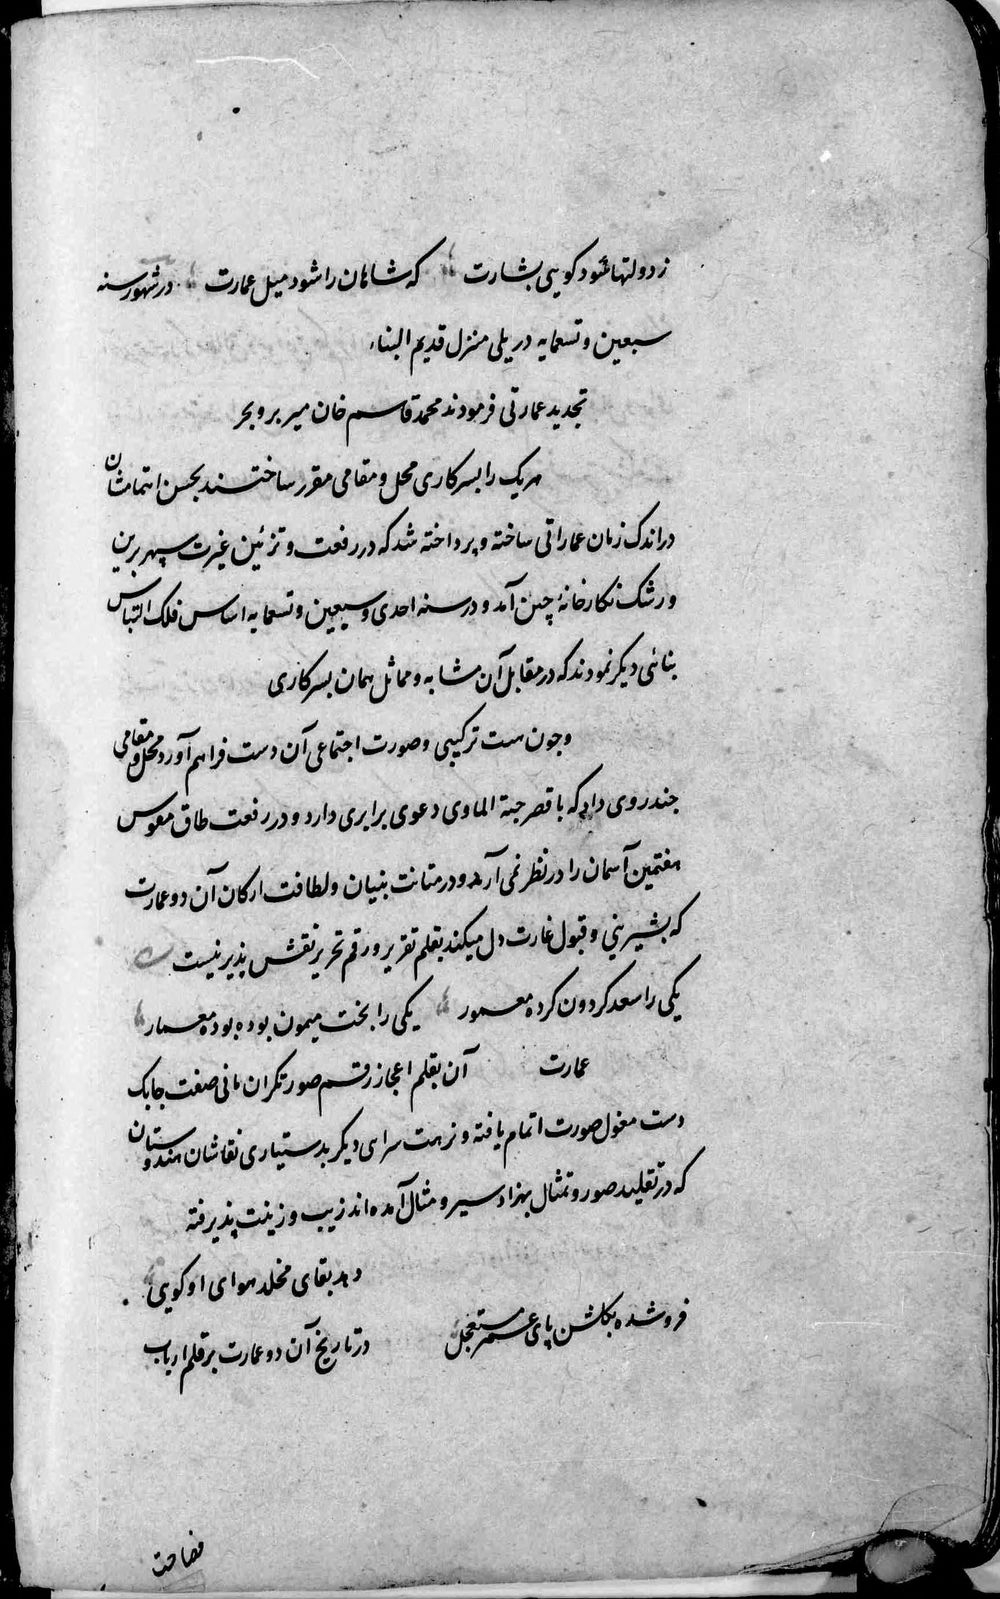 ز دولتها شود کویی بشارت که شاهان را شود میل عمارت در شهور سنه
سبعین و تسعمایه در یلی منزل قدیم البناء
تجدید عمارتی فرمودند محمد قاسم خان میر بر و بحر
هریک را بسرکاری محل و مقامی مقرر ساختند بحسن اهتمامشان
در اندک زمان عماراتی ساخته و پرداخته شد که در رفعت و تزئین غیرت سپهر برین
و رشک نکارخانهٔ چین آمد و در سنه احدی و سبعین و تسعمایه اساس فلک التباس
بنائی دیکر نمودند که در مقابل آن مشابه و مماثل همان بسرکاری
و چون هست ترکیبی و صورت اجتماعی آن دست فراهم آورد محل و مقامی
چند روی داد که با قصر جنة الماوی دعوی برابری دارد و در رفعت طاق مقوس
هفتمین آسمان را در نظر نمی آرد و در متانت بنیان و لطافت ارکان آن دو عمارت
که بشیرینی و قبول غارت دل میکند بقلم تقریر و رقم تحریر نقش پذیر نیست
یکی را سعد کردون کرده معمور یکی را بخت میمون بوده معمار
عمارت آن بقلم اعجاز رقم صورتکران مانی صفت چابک
دست مغول صورت اتمام یافته و نزهت سرای دیکر بدستیاری نقاشان هندوستان
که در تقلید صور و تمثال بهزاد سیر و مثال آمده اند زیب و زینت پذیرفته
دهد بقای مخلد هوای او کویی
فرو شده بکلشن پای عمر مستعجل در تاریخ آن دو عمارت بر قلم ارباب
فصاحت